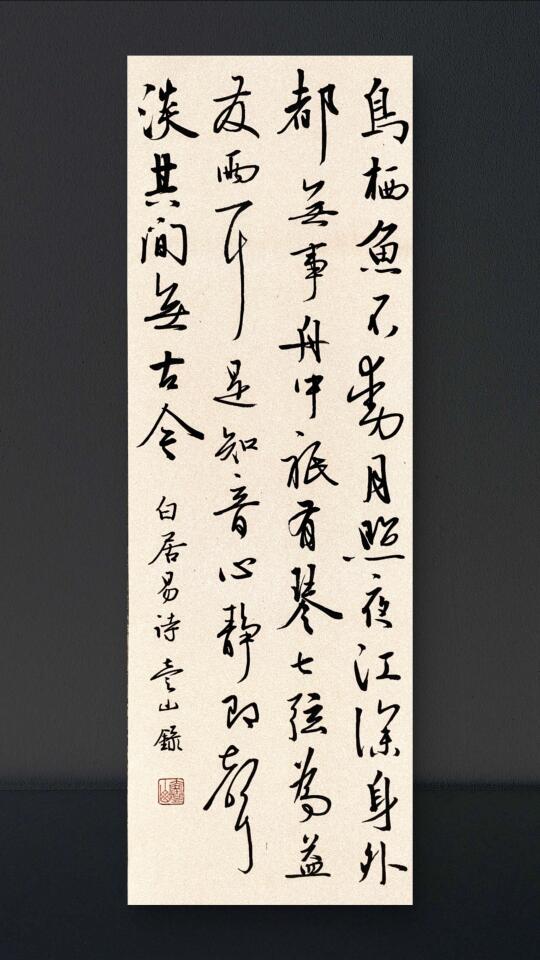 鳥栖魚不動月照夜江深身外
都無事舟中祇有琴七弦為益
友兩耳是知音心靜即聲
淡其間無古今
白居易詩 山錄